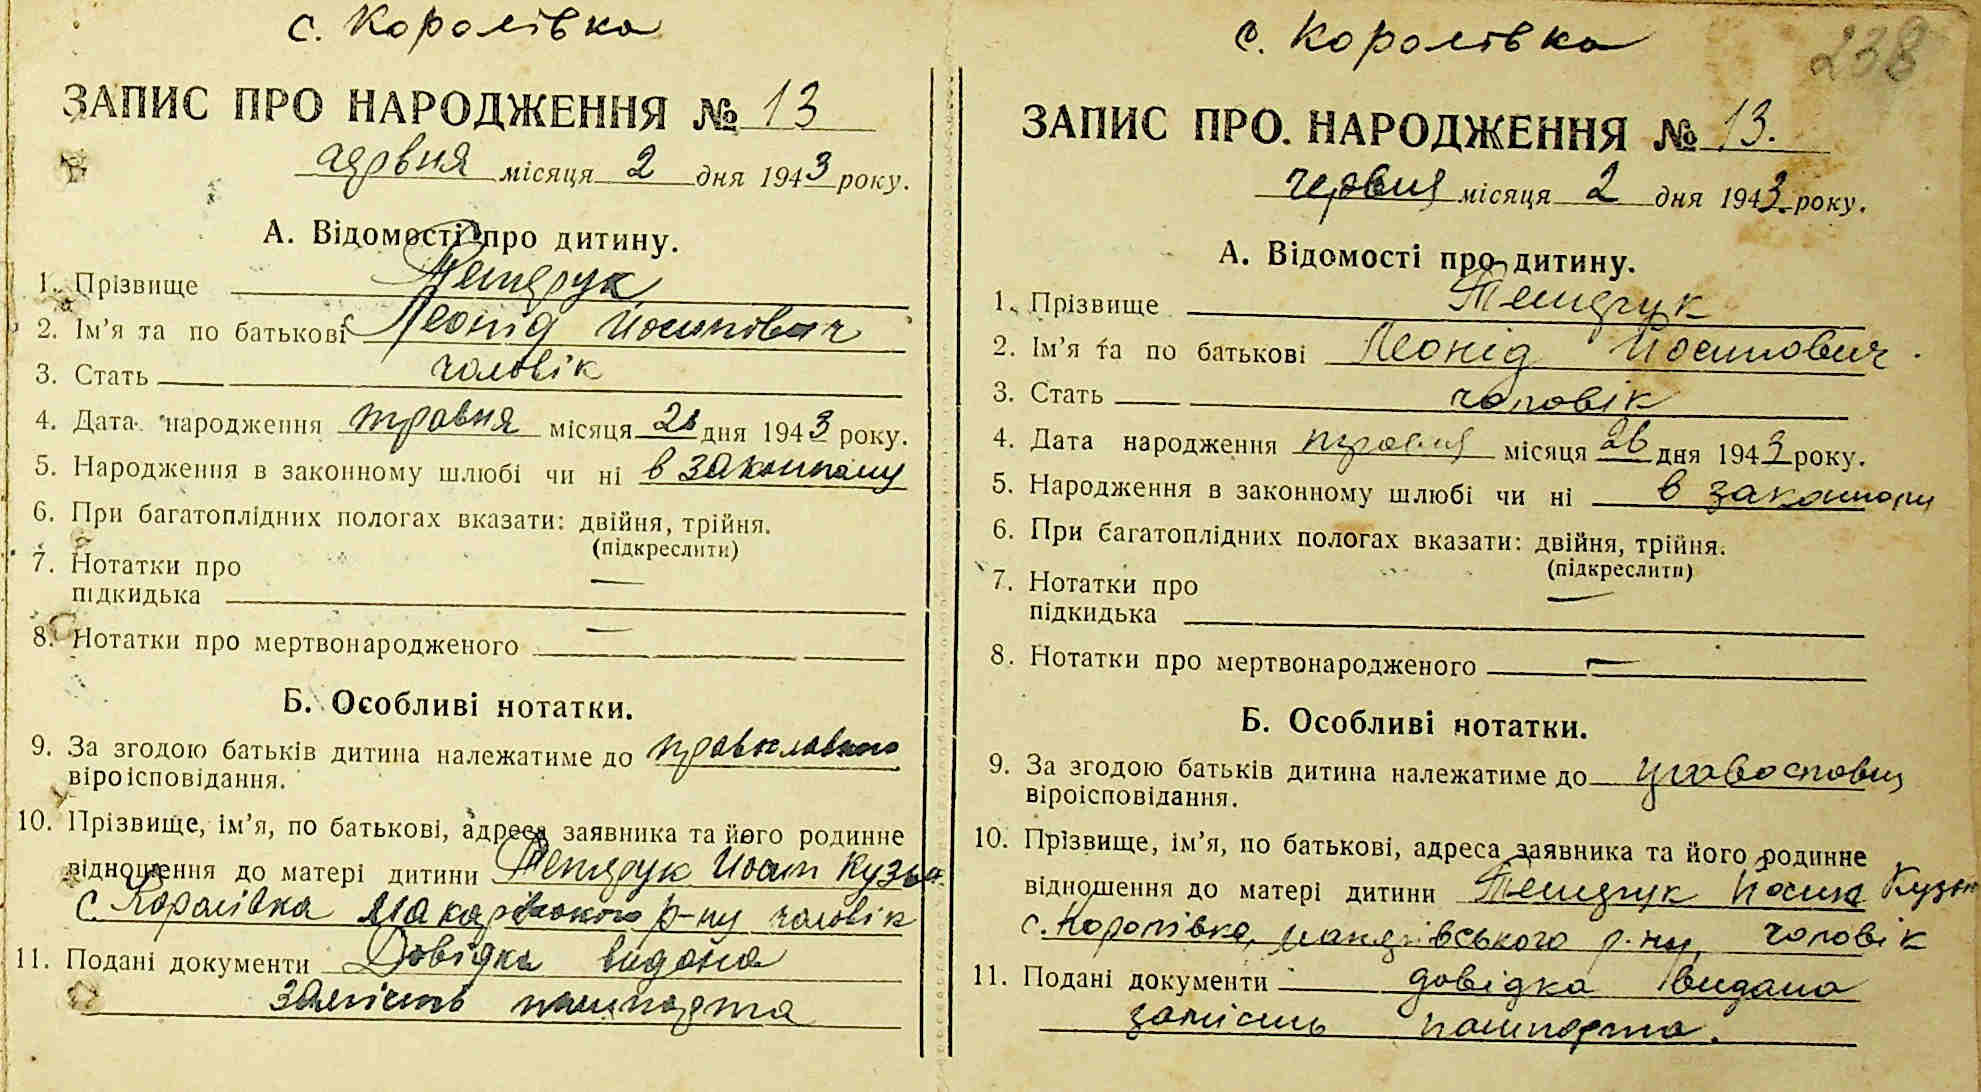 с. Королівка
ЗАПИС ПРО НАРОДЖЕННЯ № 13
червня місяця 2 дня 1943 року.
А. Відомості про дитину.
1. Прізвище
2. Ім'я та по батькові Леонід Йосипович
3. Стать чоловік
4. Дата народження травня місяця 26 дня 1943 року.
5. Народження в законному шлюбі чи ні в законному
6. При багатоплідних пологах вказати: двійня, трійня.
(підкреслити)
7. Нотатки про —
підкидька
8. Нотатки про мертвонародженого —
Б. Особливі нотатки.
9. За згодою батьків дитина належатиме до православного
віроісповідання.
10. Прізвище, ім'я, по батькові, адреса заявника та його родинне
відношення до матері дитини Йосип Кузьм
с. Королівка Макарівського р-ну чоловік
11. Подані документи Довідка видана
замість пашпорта
с. Королівка
238
ЗАПИС ПРО. НАРОДЖЕННЯ № 13.
червня місяця 2 дня 1943. року.
А. Відомості про дитину.
1. Прізвище
2. Ім'я та по батькові Леонід Йосипович
3. Стать чоловік
4. Дата народження травня місяця 26 дня 1943 року.
5. Народження в законному шлюбі чи ні в законному
6. При багатоплідних пологах вказати: двійня, трійня.
(підкреслити)
7. Нотатки про —
підкидька
8. Нотатки про мертвонародженого —
Б. Особливі нотатки.
9. За згодою батьків дитина належатиме до
віроісповідання.
10. Прізвище, ім'я, по батькові, адреса заявника та його родинне
відношення до матері дитини Йосип Кузьм
с. Королівка, Макарівського р-ну, чоловік
11. Подані документи довідка видана
замість пашпорта.